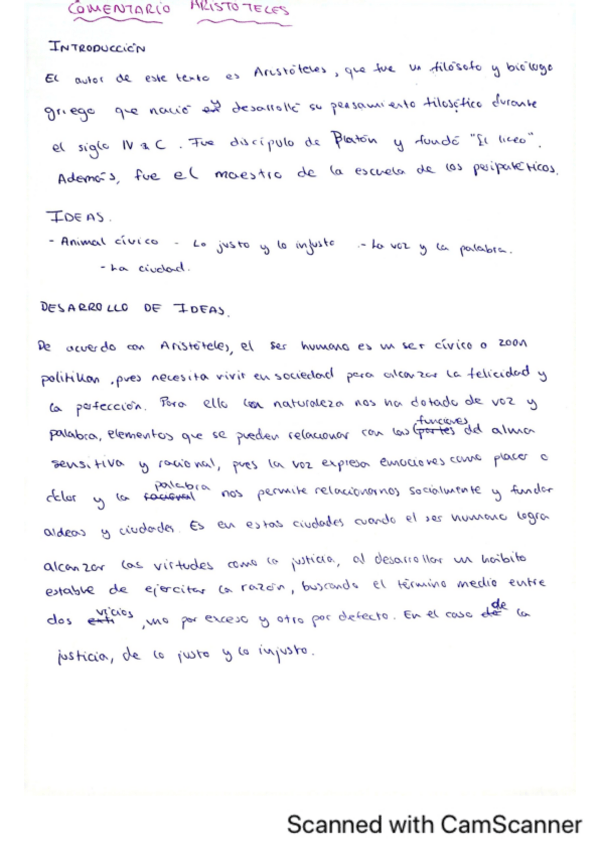 COMENTARIO ARISTÓTELES
INTRODUCCIÓN
El autor de este texto es Aristóteles, que fue un filósofo y biólogo
griego que nació y desarrolló su pensamiento filosófico durante
el siglo IV a C. Fue discípulo de Platón y fundó "El liceo".
Además, fue el maestro de la escuela de los peripatéticos.
IDEAS.
- Animal cívico - Lo justo y lo injusto - La voz y la palabra.
- La ciudad.
DESARROLLO DE IDEAS.
De acuerdo con Aristóteles, el ser humano es un ser cívico o zoon
politikon, pues necesita vivir en sociedad para alcanzar la felicidad y
la perfección. Para ello la naturaleza nos ha dotado de voz y
palabra, elementos que se pueden relacionar con las funciones del alma
sensitiva y racional, pues la voz expresa emociones como placer o
dolor y la palabra nos permite relacionarnos socialmente y fundar
aldeas y ciudades. Es en estas ciudades cuando el ser humano logra
alcanzar las virtudes como la justicia, al desarrollar un hábito
estable de ejercitar la razón, buscando el término medio entre
dos vicios, uno por exceso y otro por defecto. En el caso de la
justicia, de lo justo y lo injusto.
Scanned with CamScanner